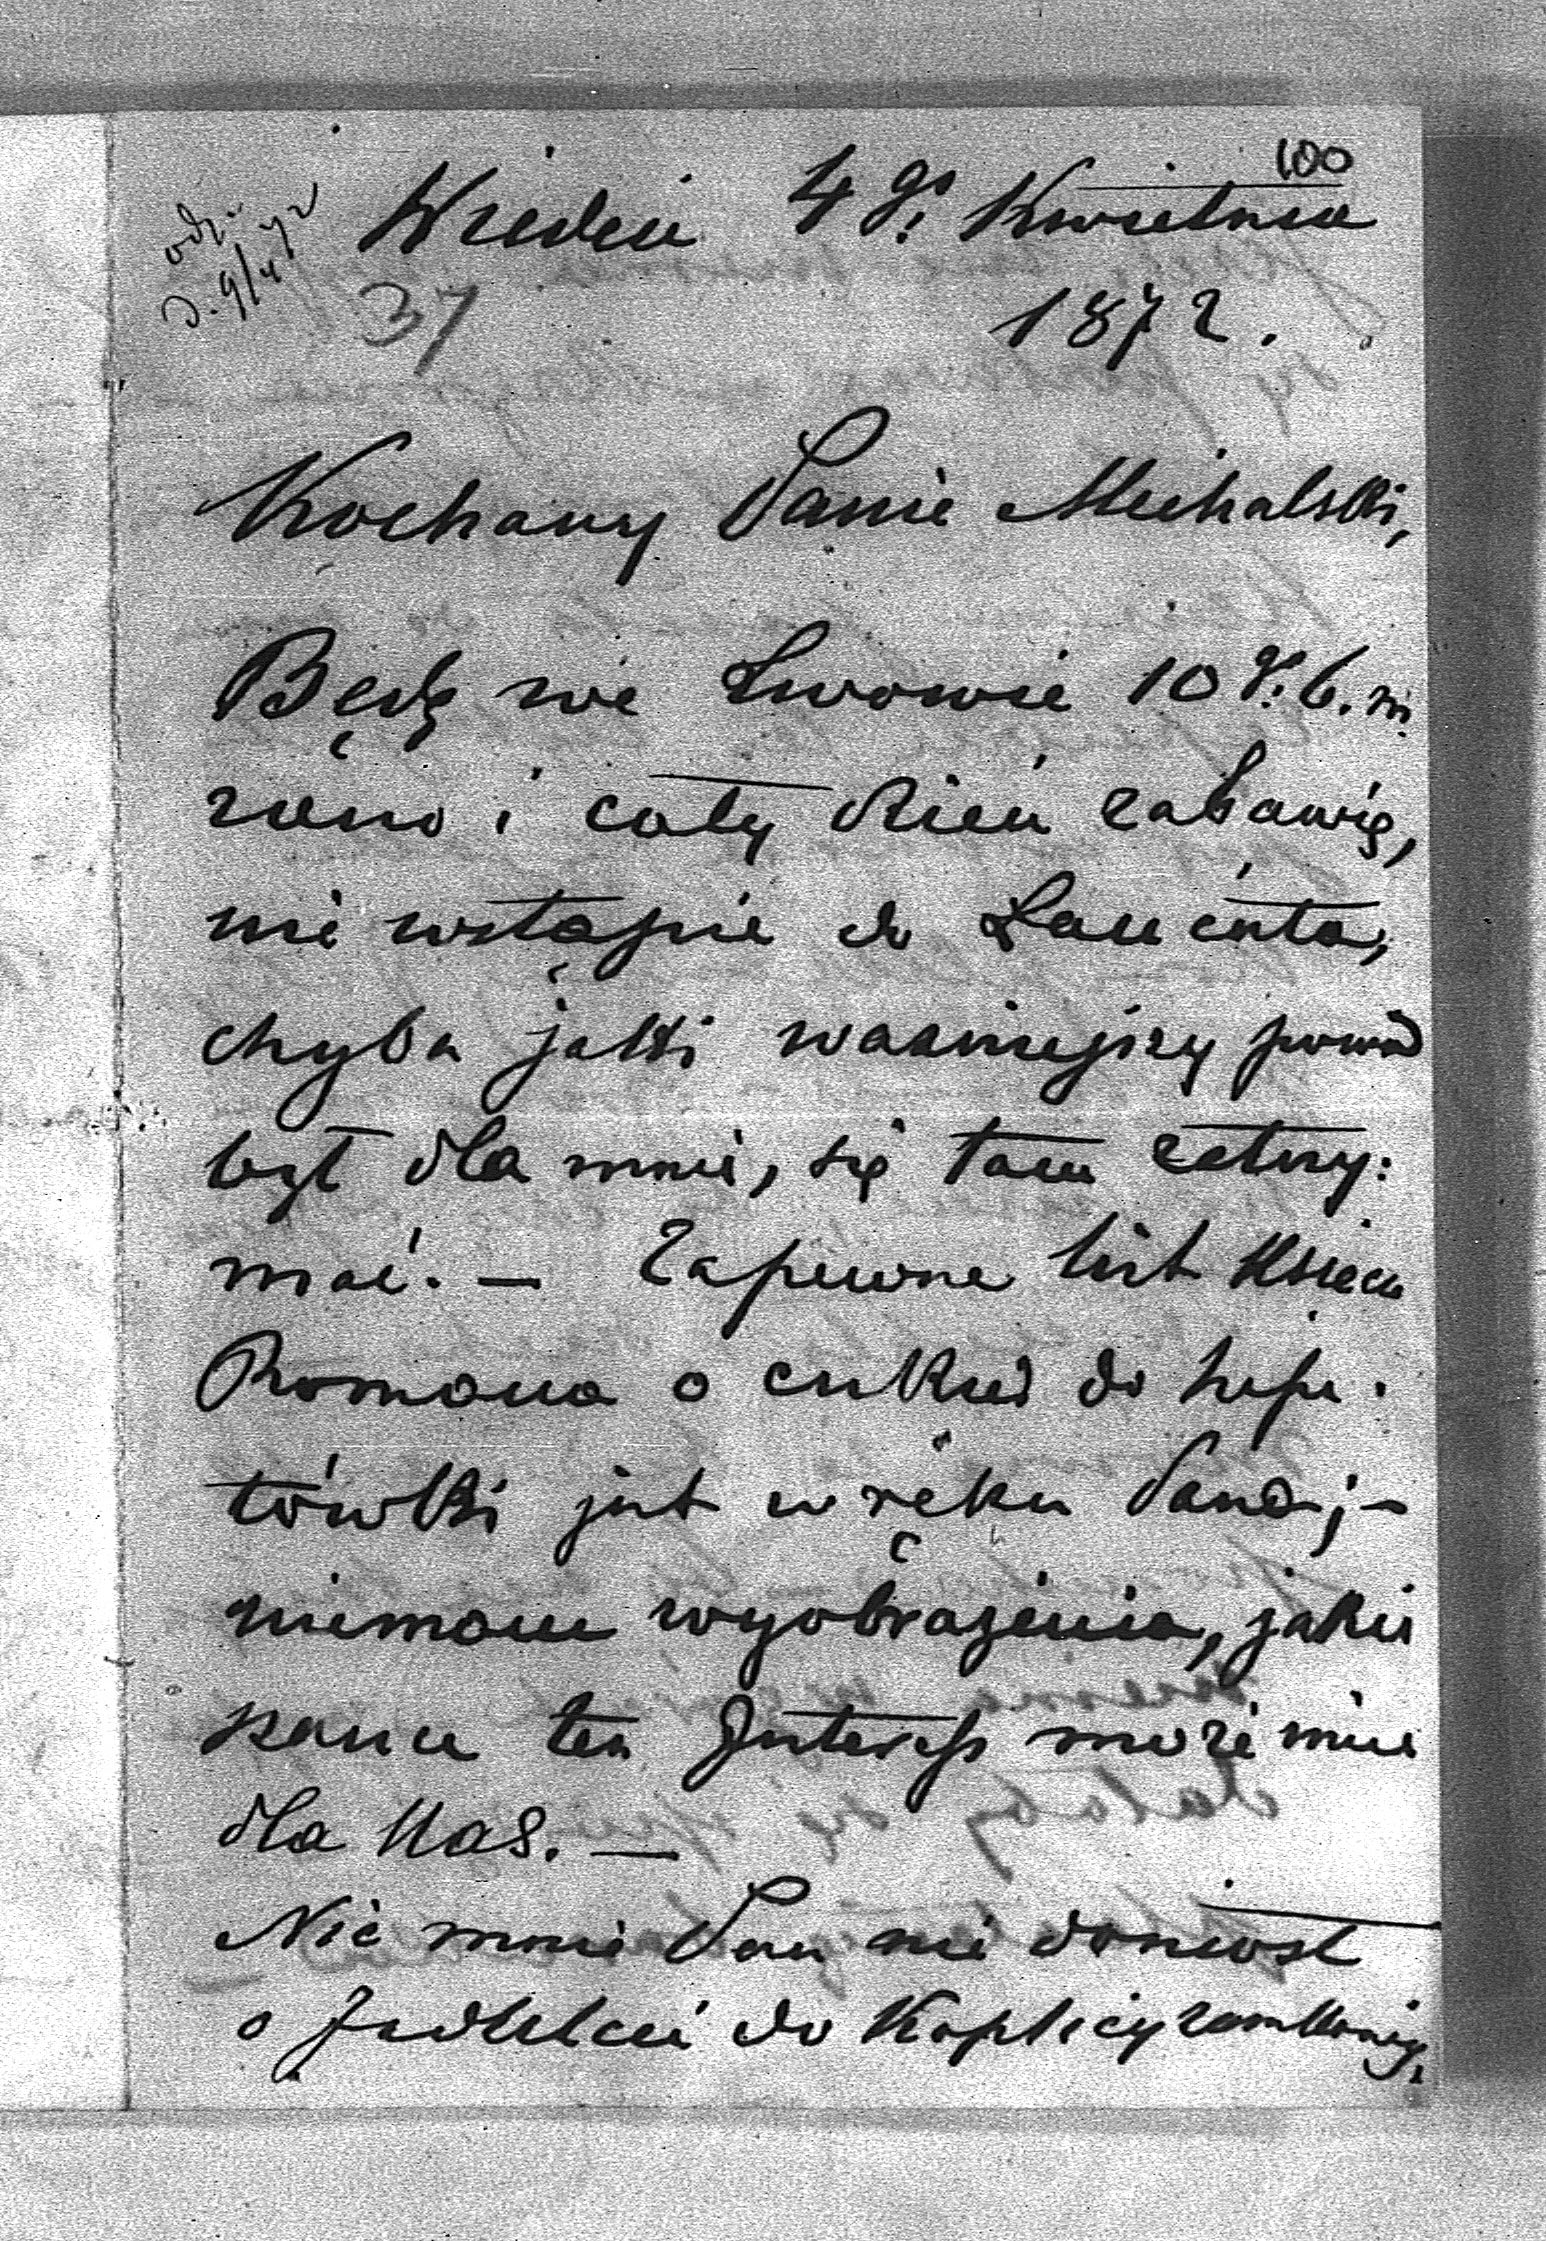 100
odp.
d. 9/4 72
Wiedeń 4 go Kwietnia
37
1872.
Kochany Panie Michalski,
Będę we Lwowie 10 go b. m.
rano i cały dzień zabawię,
nie wstąpię do Łańcuta,
chyba jakki ważniejszy powód
był dla mnie, się tam zatrzy:
mać. — Zapewne list Księcia
Romana o cukier do Szepe.
tówki jest w ręku Pana; –
niemam wyobrażenia, jakie
szance ten Interess może mieć
dla Nas. —
Nic mnie Pan nie doniósł
o do Kaplicy zamkowéj,